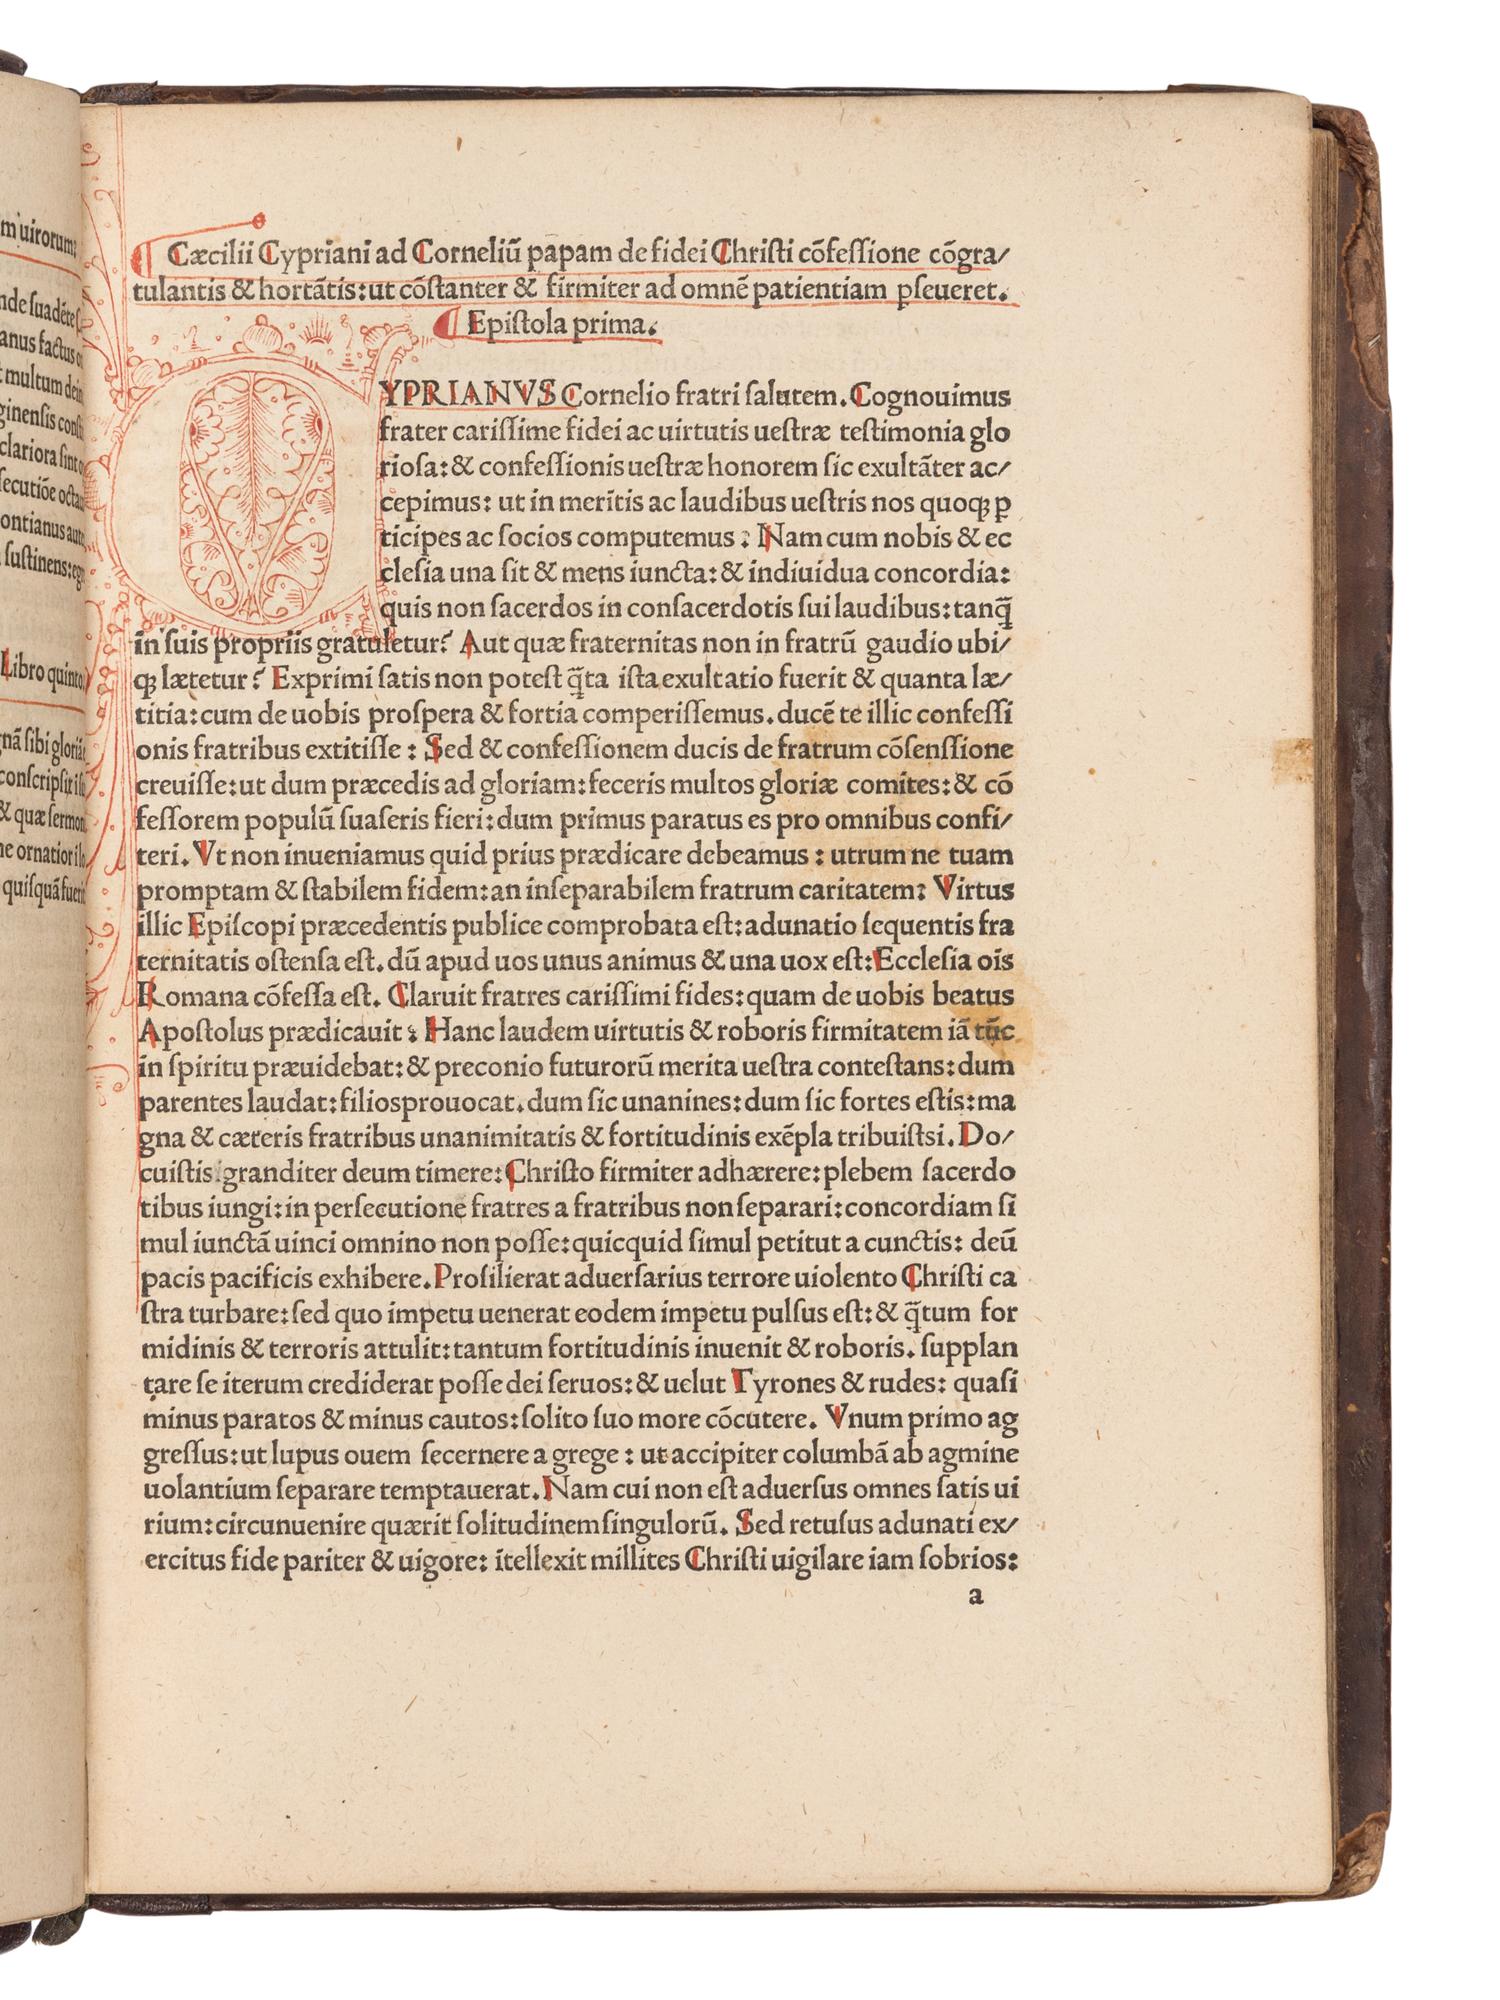 m uirorum:
nde suadēte
anus factus
multum dein
ginensis
clariora sint
secutiōe octau
ontianus
sustinens: egr
Libro quinto
gnā sibi gloriā:
conscripsit
& quæ sermon
ne ornatior
quisquā fuerit
Cæcilii Cypriani ad Corneliū papam de fidei Christi cōfessione cōgra/
tulantis & hortātis: ut cōstanter & firmiter ad omnē patientiam ꝑseueret.
Epistola prima.
CYPRIANVS Cornelio fratri salutem. Cognouimus
frater carissime fidei ac uirtutis uestræ testimonia glo
riosa: & confessionis uestræ honorem sic exultāter ac/
cepimus: ut in meritis ac laudibus uestris nos quoqꝫ ꝑ
ticipes ac socios computemus: Nam cum nobis & ec
clesia una sit & mens iuncta: & indiuidua concordia:
quis non sacerdos in consacerdotis sui laudibus: tanq̄
in suis propriis gratuletur? Aut quæ fraternitas non in fratrū gaudio ubi/
qꝫ lætetur? Exprimi satis non potest q̄ta ista exultatio fuerit & quanta læ/
titia: cum de uobis prospera & fortia comperissemus. ducē te illic confessi
onis fratribus extitisse: Sed & confessionem ducis de fratrum cōsenssione
creuisse: ut dum præcedis ad gloriam: feceris multos gloriæ comites: & cō
fessorem populū suaseris fieri: dum primus paratus es pro omnibus confi/
teri. Vt non inueniamus quid prius prædicare debeamus: utrum ne tuam
promptam & stabilem fidem: an inseparabilem fratrum caritatem: Virtus
illic Episcopi præcedentis publice comprobata est: adunatio sequentis fra
ternitatis ostensa est. dū apud uos unus animus & una uox est: Ecclesia oīs
Romana cōfessa est. Claruit fratres carissimi fides: quam de uobis beatus
Apostolus prædicauit: Hanc laudem uirtutis & roboris firmitatem iā tūc
in spiritu præuidebat: & preconio futurorū merita uestra contestans: dum
parentes laudat: filiosprouocat. dum sic unanines: dum sic fortes estis: ma
gna & cæteris fratribus unanimitatis & fortitudinis exēpla tribuistsi. Do/
cuistis granditer deum timere: Christo firmiter adhærere: plebem sacerdo
tibus iungi: in persecutione fratres a fratribus non separari: concordiam si
mul iunctā uinci omnino non posse: quicquid simul petitut a cunctis: deū
pacis pacificis exhibere. Prosilierat aduersarius terrore uiolento Christi ca
stra turbare: sed quo impetu uenerat eodem impetu pulsus est: & q̄tum for
midinis & terroris attulit: tantum fortitudinis inuenit & roboris. supplan
tare se iterum crediderat posse dei seruos: & uelut Tyrones & rudes: quasi
minus paratos & minus cautos: solito suo more cōcutere. Vnum primo ag
gressus: ut lupus ouem secernere a grege: ut accipiter columbā ab agmine
uolantium separare temptauerat. Nam cui non est aduersus omnes satis ui
rium: circunuenire quærit solitudinem singulorū. Sed retusus adunati ex/
ercitus fide pariter & uigore: ītellexit millites Christi uigilare iam sobrios:
a